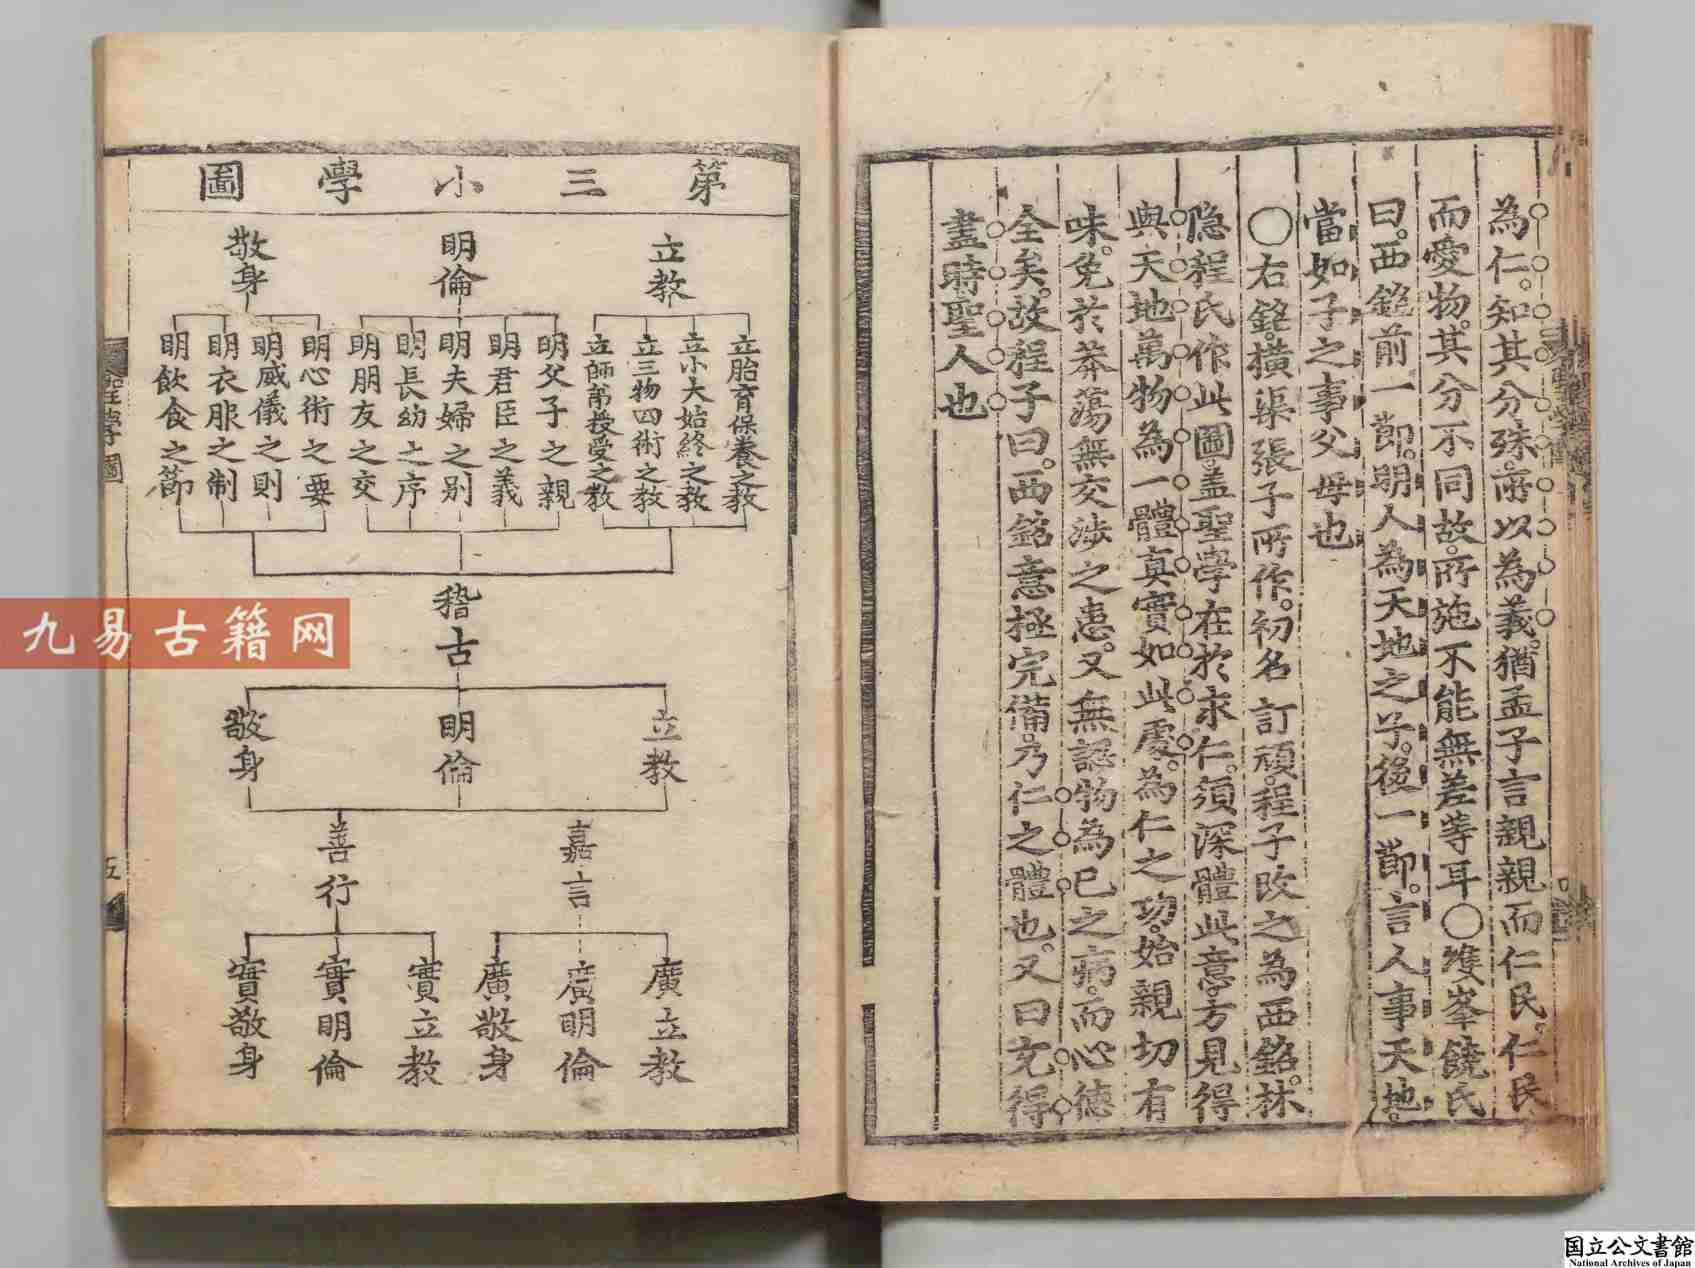 為仁。知其分殊。所以為義。猶孟子言親親而仁民。仁民
而愛物。其分不同。故所施不能無差等耳〇雙峯饒氏
曰。西銘前一節。明人為天地之子。後一節。言人事天地。
當如子之事父母也
〇右銘。橫渠張子所作。初名訂頑。程子改之為西銘。林
隐程氏作此圖。盖聖學在於求仁。須深體此意。方見得
與天地萬物為一體。真實如此處。為仁之功。始親切有
味。免於莽蕩無交涉之患。又無認物為己之病。而心德
全矣。故程子曰。西銘意極完備。乃仁之體也。又曰充得
盡時聖人也
第三小學圖
立教
明倫
敬身
立胎育保養之教
立小大始終之教
立三物四術之教
立師弟授受之教
明父子之親
明君臣之義
明夫婦之别
明長幼之序
明朋友之交
明心術之要
明威儀之則
明衣服之制
明飲食之節
稽古
立教
明倫
敬身
嘉言
善行
廣立教
廣明倫
廣敬身
實立教
實明倫
實敬身
聖學圖
五
九易古籍网
国立公文書館
National Archives of Japan